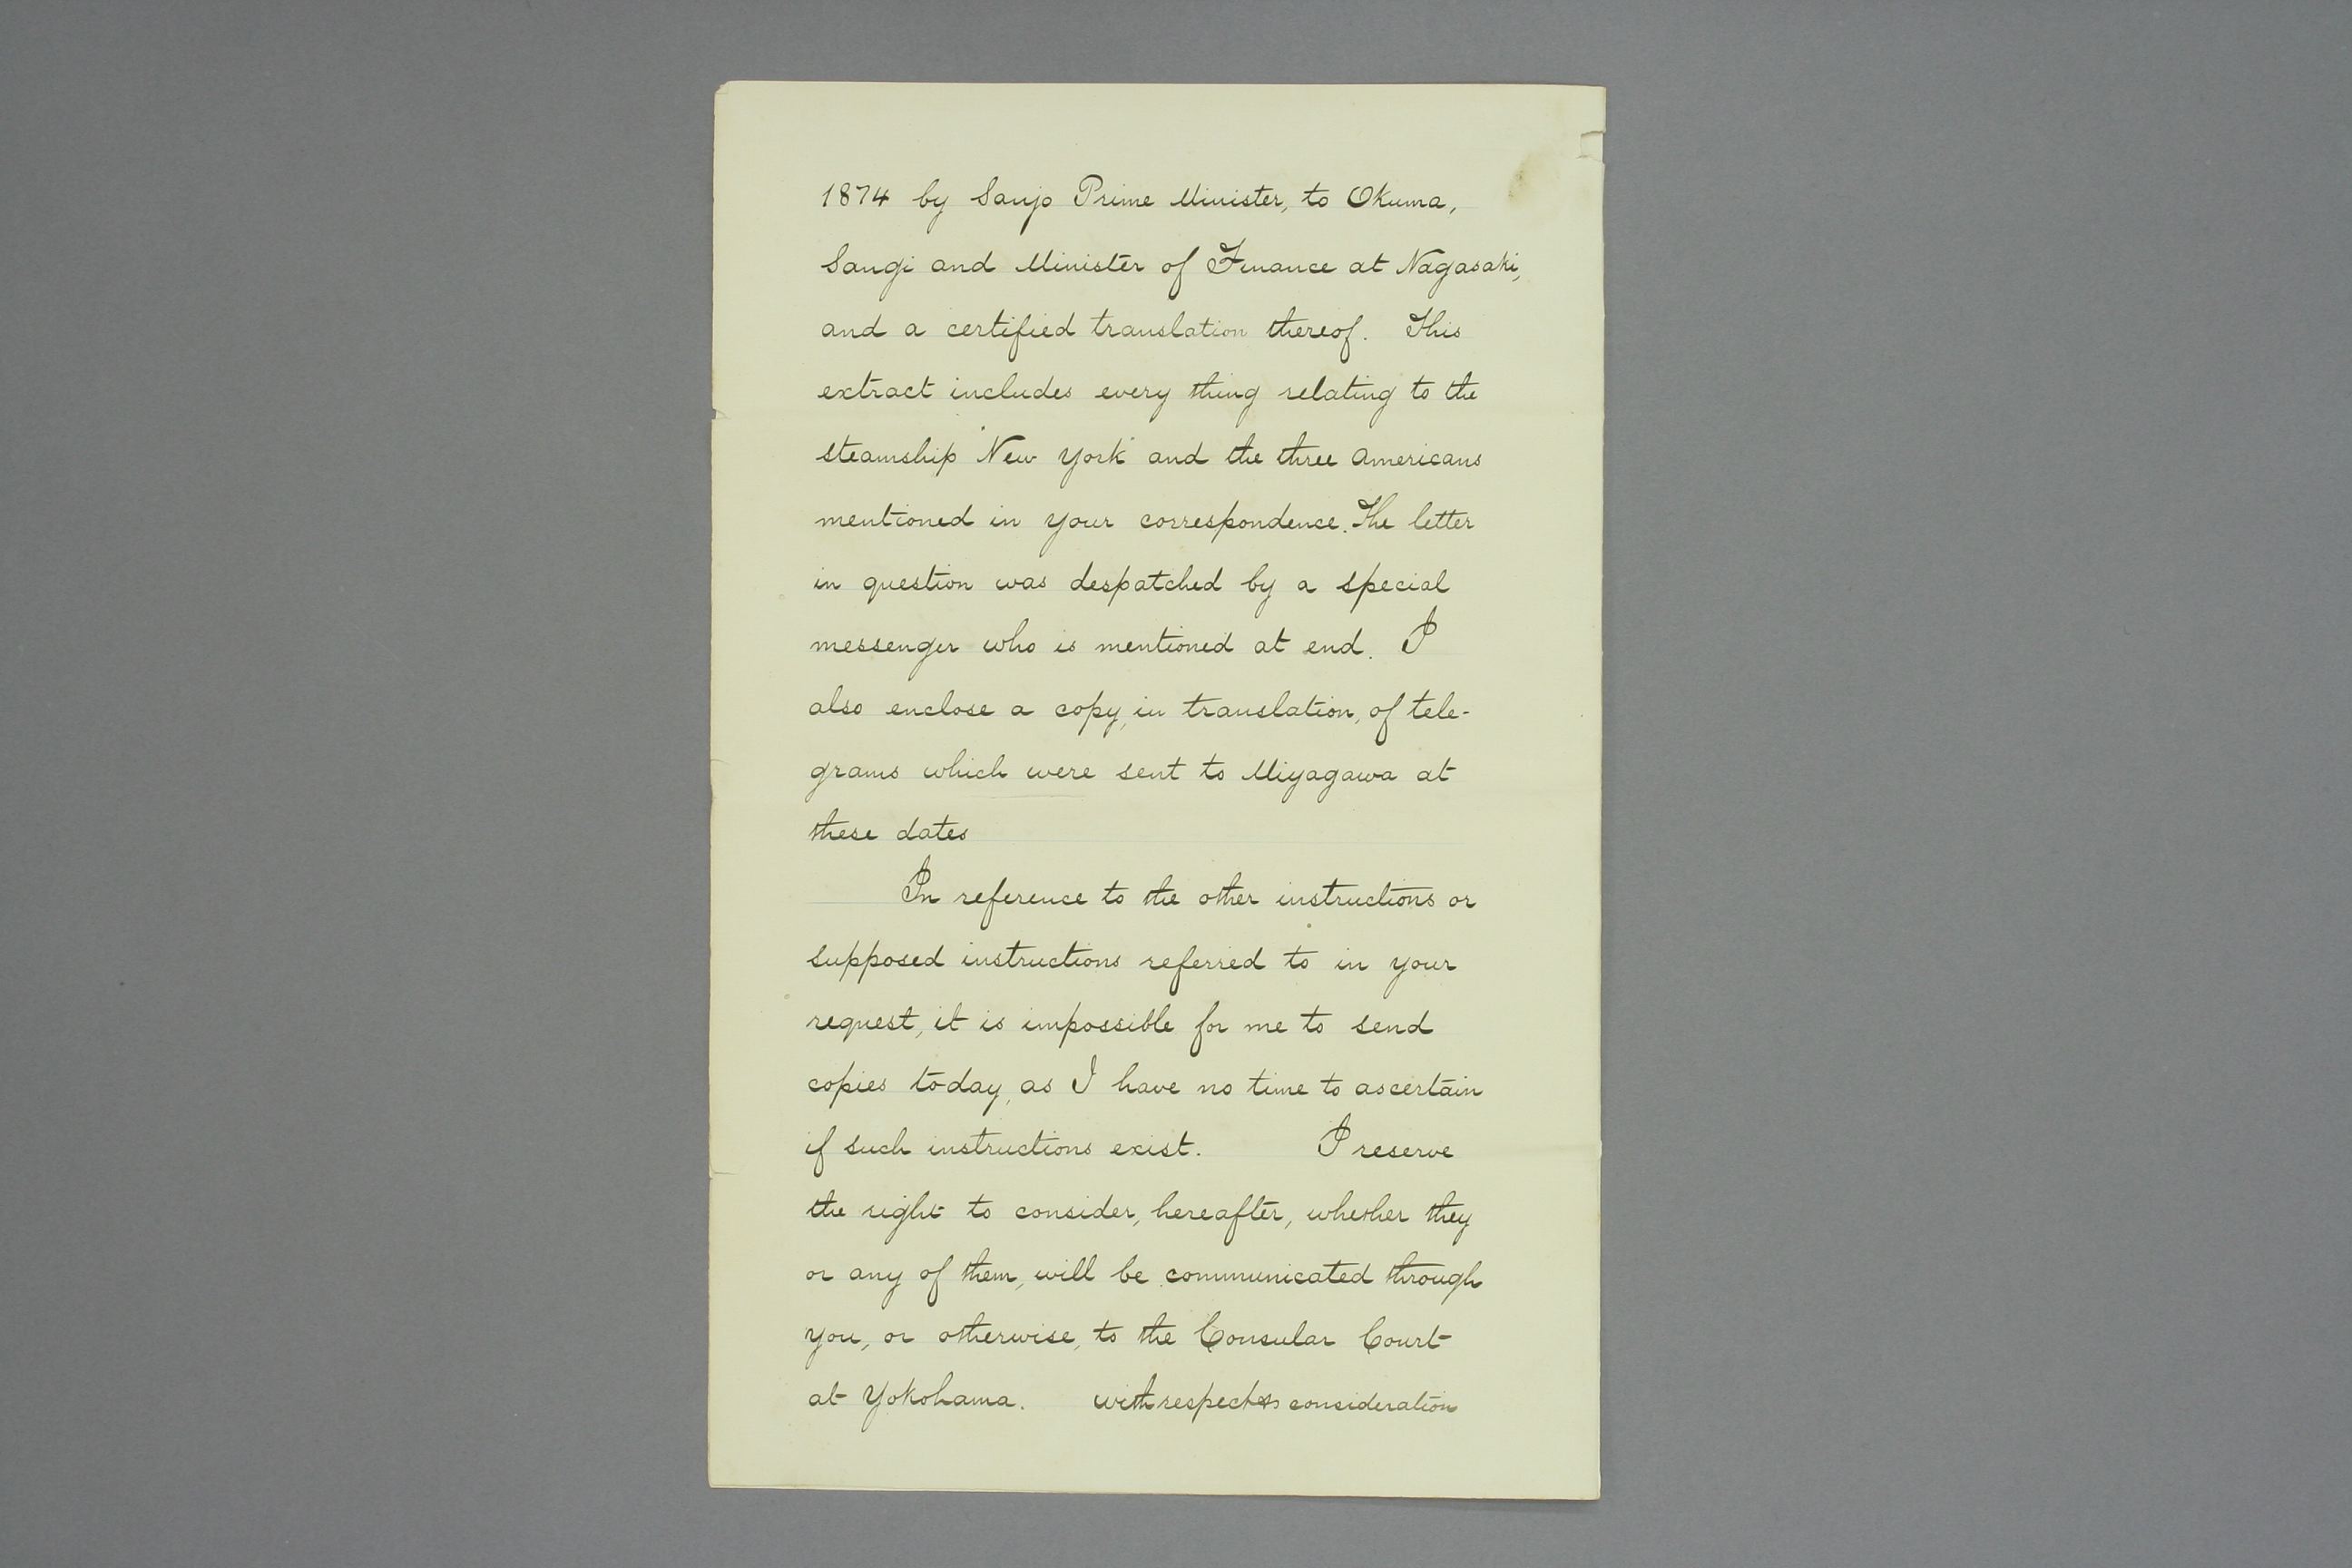 1874 by Sanjo Prime Minister, to Okuma,
Sangi and Minister of Finance at Nagasaki,
and a certified translation thereof. This
extract includes every thing relating to the
steamship "New York" and the three Americans
mentioned in your correspondence. The letter
in question was despatched by a special
messenger who is mentioned at end. I
also enclose a copy, in translation, of tele-
grams which were sent to Miyagawa at
these dates
In reference to the other instructions or
supposed instructions referred to in your
request, it is impossible for me to send
copies to-day, as I have no time to ascertain
if such instructions exist. I reserve
the right to consider, hereafter, whether they
or any of them, will be communicated through
you, or otherwise, to the Consular Court
at Yokohama. with respect & consideration